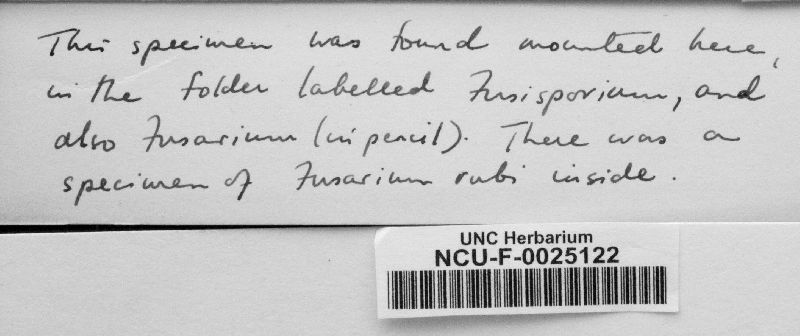 This specimen was found mounted here,
in the folder labelled Fusisporium, and
also Fusarium (in pencil). There was a
specimen of Fusarium rubi inside.
UNC Herbarium
NCU-F-0025122